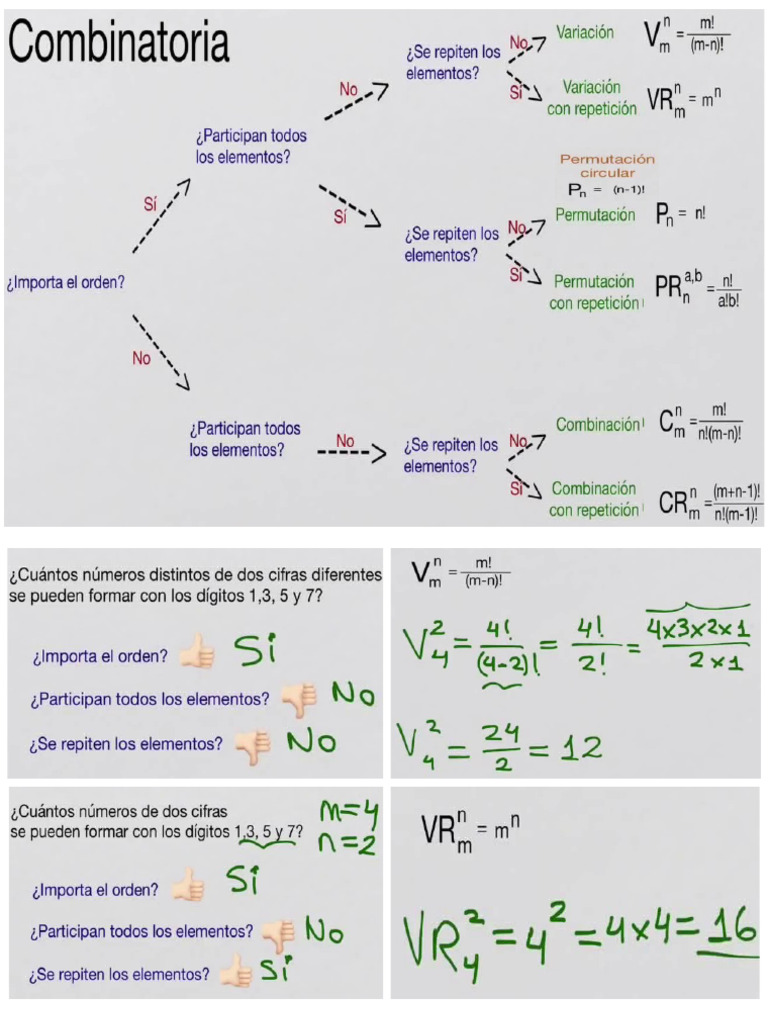 Combinatoria
¿Importa el orden?
Sí
No
¿Participan todos
los elementos?
No
Sí
¿Se repiten los
elementos?
No
Sí
Variación
V m n = m! / (m-n)!
Variación
con repetición
VR m n = m^n
Permutación
circular
Pn = (n-1)!
¿Se repiten los
elementos?
No
Sí
Permutación
Pn = n!
Permutación
con repetición
PR n a,b = n! / a!b!
¿Participan todos
los elementos?
No
¿Se repiten los
elementos?
No
Sí
Combinación
C m n = m! / n!(m-n)!
Combinación
con repetición
CR m n = (m+n-1)! / n!(m-1)!
¿Cuántos números distintos de dos cifras diferentes
se pueden formar con los dígitos 1,3, 5 y 7?
¿Importa el orden? Si
¿Participan todos los elementos? No
¿Se repiten los elementos? No
V m n = m! / (m-n)!
V 4 2 = 4! / (4-2)! = 4! / 2! = 4x3x2x1 / 2x1
V 4 2 = 24 / 2 = 12
¿Cuántos números de dos cifras
se pueden formar con los dígitos 1,3, 5 y 7?
m=4
n=2
¿Importa el orden? Si
¿Participan todos los elementos? No
¿Se repiten los elementos? Si
VR m n = m^n
VR 4 2 = 4^2 = 4x4 = 16